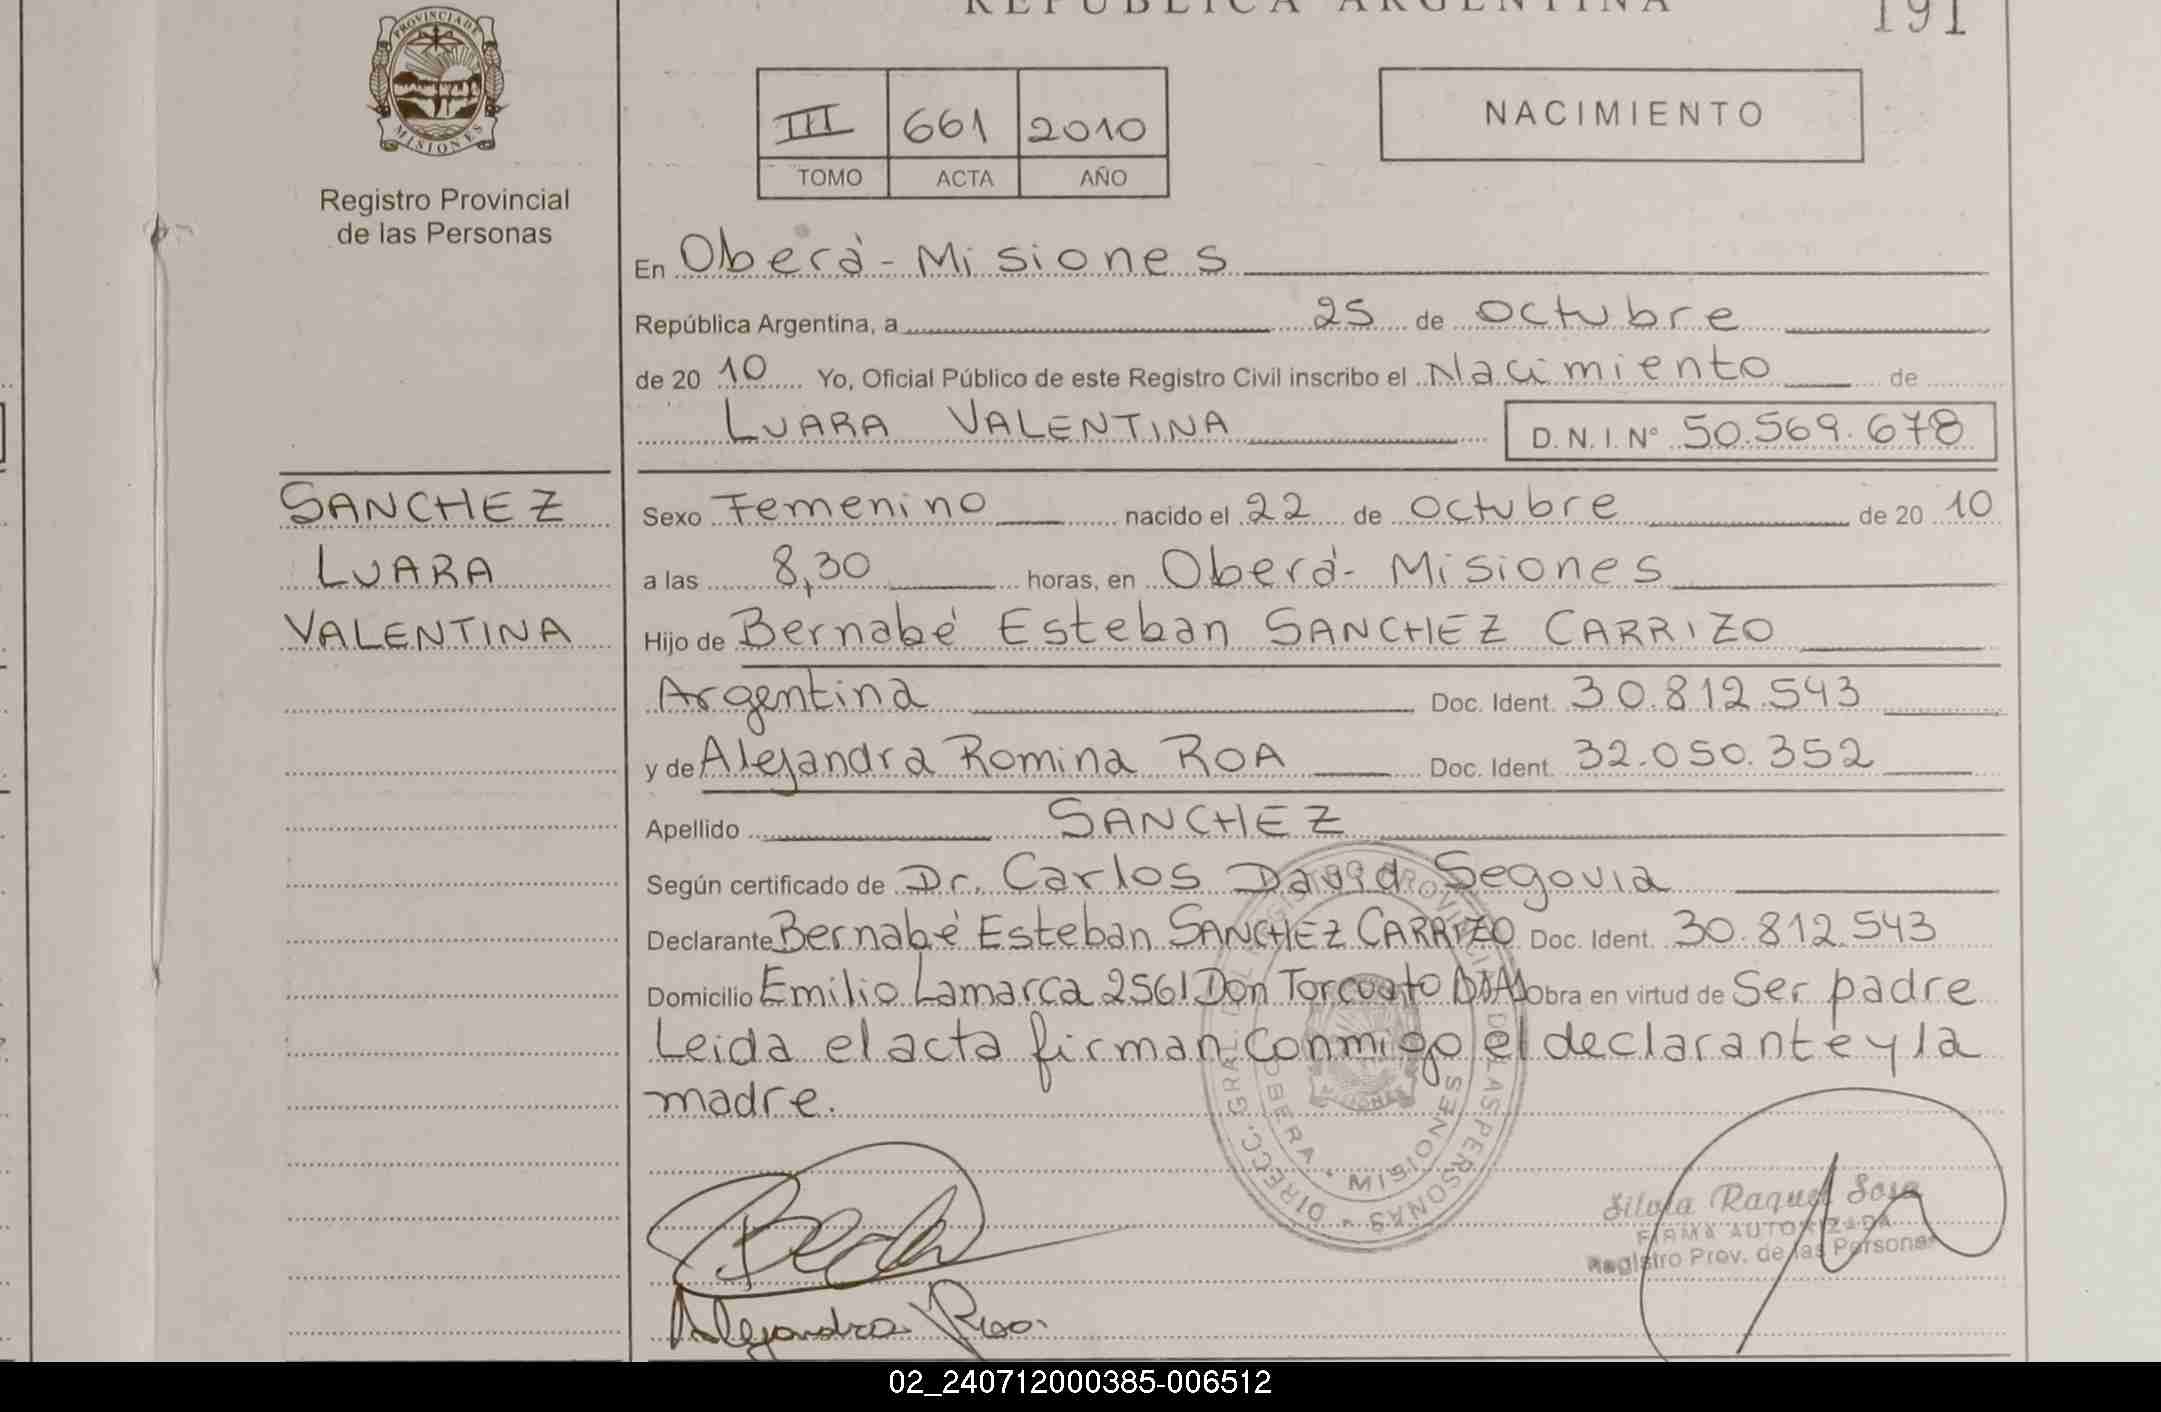 REPUBLICA ARGENTINA
191
PROVINCIA DE MISIONES
Registro Provincial
de las Personas
III 661 2010
TOMO ACTA AÑO
NACIMIENTO
En Oberá - Misiones
República Argentina, a 25 de octubre
de 20 10 Yo, Oficial Público de este Registro Civil inscribo el Nacimiento de
LUARA VALENTINA D.N.I. Nº 50.569.678
SANCHEZ
LUARA
VALENTINA
Sexo Femenino nacido el 22 de octubre de 20 10
a las 8,30 horas, en Oberá - Misiones
Hijo de Bernabé Esteban SANCHEZ CARRIZO
Argentina Doc. Ident. 30.812.543
y de Alejandra Romina ROA Doc. Ident. 32.050.352
Apellido SANCHEZ
Según certificado de Dr. Carlos David Segovia
Declarante Bernabé Esteban SANCHEZ CARRIZO Doc. Ident. 30.812.543
Domicilio Emilio Lamarca 2561 Don Torcuato Obra en virtud de Ser padre
Leida el acta firman conmigo el declarante y la
madre.
DIRECC. GRAL. DEL REGISTRO PROVINCIAL DE LAS PERSONAS
OBERA - MISIONES
Silvia Raquel Sosa
FIRMA AUTORIZADA
Registro Prov. de las Personas
Alejandra Roa.
02_240712000385-006512